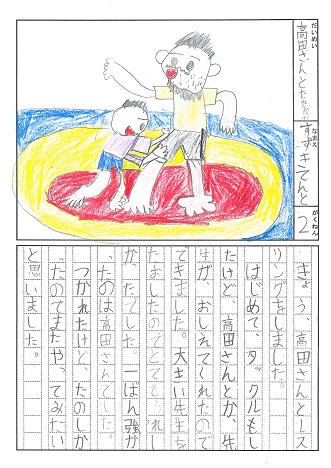 だいめい
高田さんとたたかた
なまえ
すずきてんと
がくねん
2
きょう、高田さんとレス
リングをしました。
はじめて、タックルもし
たけど、高田さんとか、先
生が、おしえてくれたので
できました。大きい先生を
たおしたのでとてもうれし
かったでした。一ばん強か
ったのは高田さんでした。
つかれたけど、たのしか
ったのでまたやってみたい
と思いました。